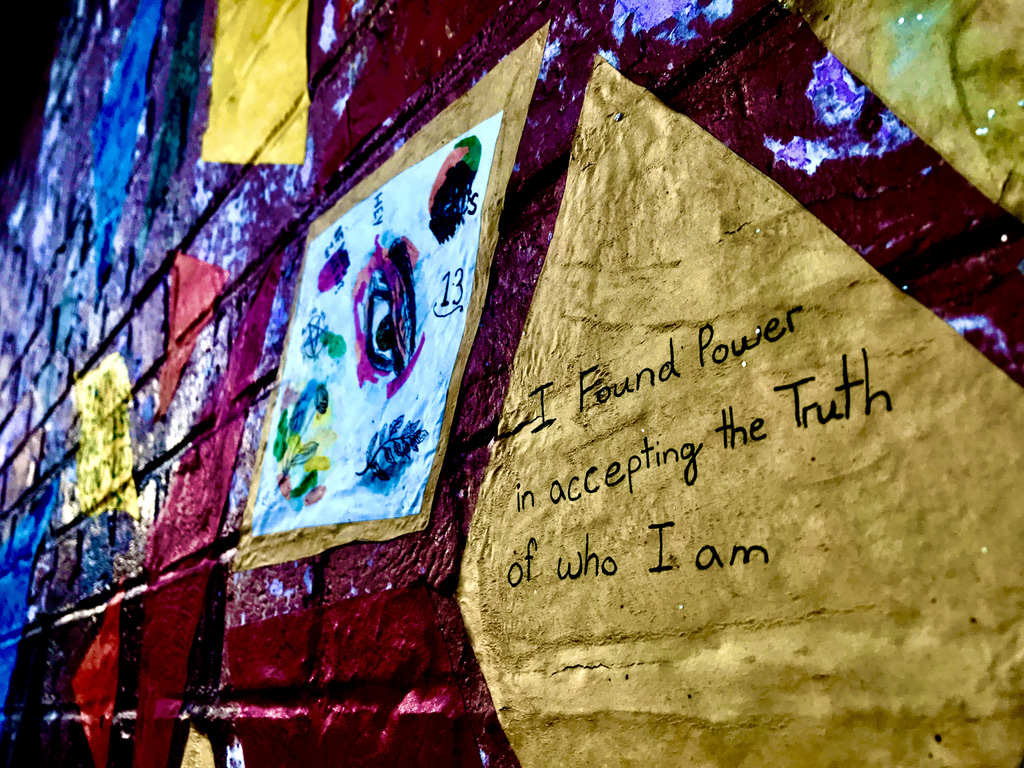 13
I Found Power
in accepting the Truth
of who I am